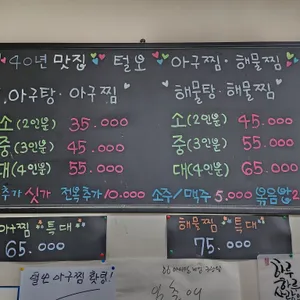 40년 맛집 털보 아구찜·해물찜
아구탕·아구찜
소(2인분) 35.000
중(3인분) 45.000
대(4인분) 55.000
해물탕·해물찜
소(2인분) 45.000
중(3인분) 55.000
대(4인분) 65.000
추가 전복추가 10.000 소주/맥주 5.000 볶음밥 2
아구찜 특대
65.000
해물찜 특대
75.000
아구찜